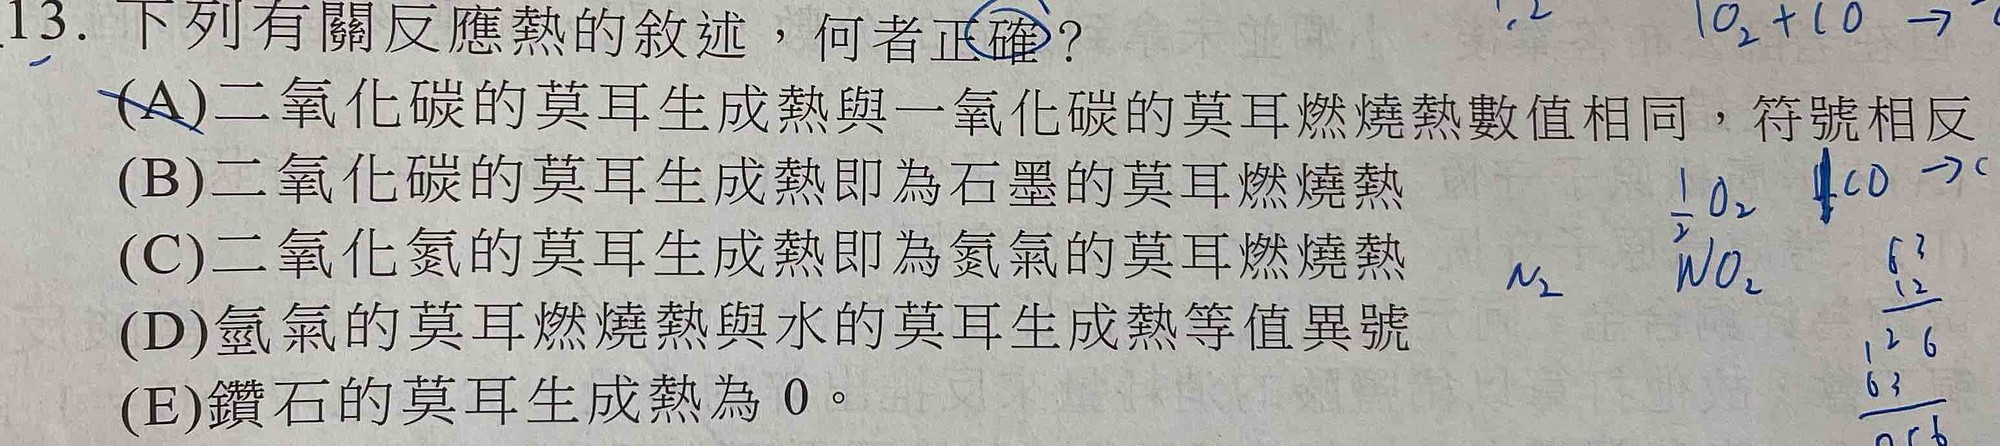 13. 下列有關反應熱的敘述，何者正確？
1O₂ + CO →
(A)二氧化碳的莫耳生成熱與一氧化碳的莫耳燃燒熱數值相同，符號相反
(B)二氧化碳的莫耳生成熱即為石墨的莫耳燃燒熱
½O₂ CO → C
(C)二氧化氮的莫耳生成熱即為氮氣的莫耳燃燒熱
N₂ NO₂
63
12
(D)氫氣的莫耳燃燒熱與水的莫耳生成熱等值異號
126
63
(E)鑽石的莫耳生成熱為 0。